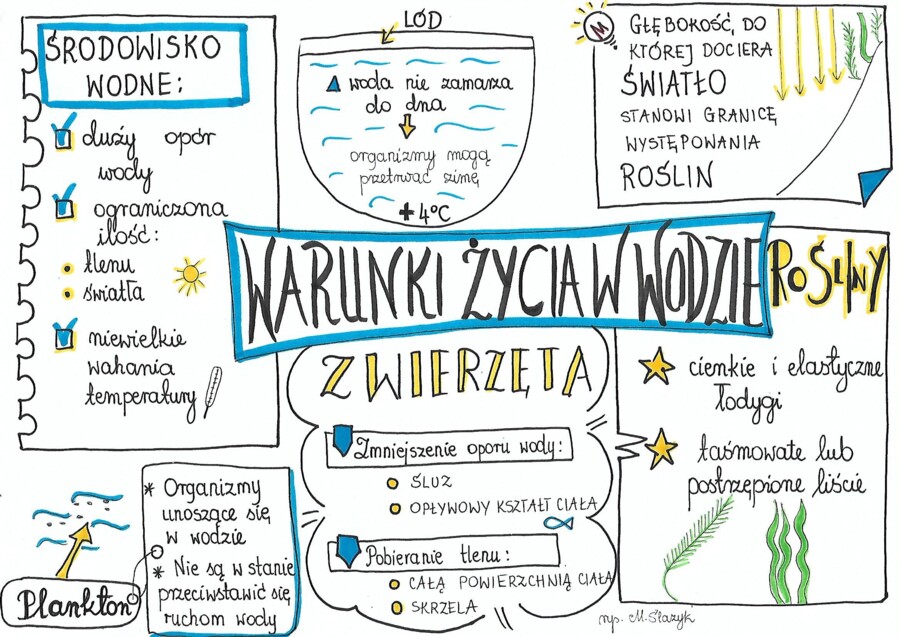 ŚRODOWISKO
WODNE:
duży opór
wody
ograniczona
ilość:
tlenu
światła
niewielkie
wahania
temperatury
LÓD
woda nie zamarza
do dna
organizmy mogą
przetrwać zimę
+4°C
GŁĘBOKOŚĆ, DO
KTÓREJ DOCIERA
ŚWIATŁO
STANOWI GRANICĘ
WYSTĘPOWANIA
ROŚLIN
WARUNKI ŻYCIA W WODZIE
ROŚLINY
cienkie i elastyczne
łodygi
taśmowate lub
postrzępione liście
ZWIERZĘTA
Zmniejszenie oporu wody:
ŚLUZ
OPŁYWOWY KSZTAŁT CIAŁA
Pobieranie tlenu:
CAŁĄ POWIERZCHNIĄ CIAŁA
SKRZELA
Plankton
* Organizmy
unoszące się
w wodzie
* Nie są w stanie
przeciwstawić się
ruchom wody
rys. M. Ślazyk